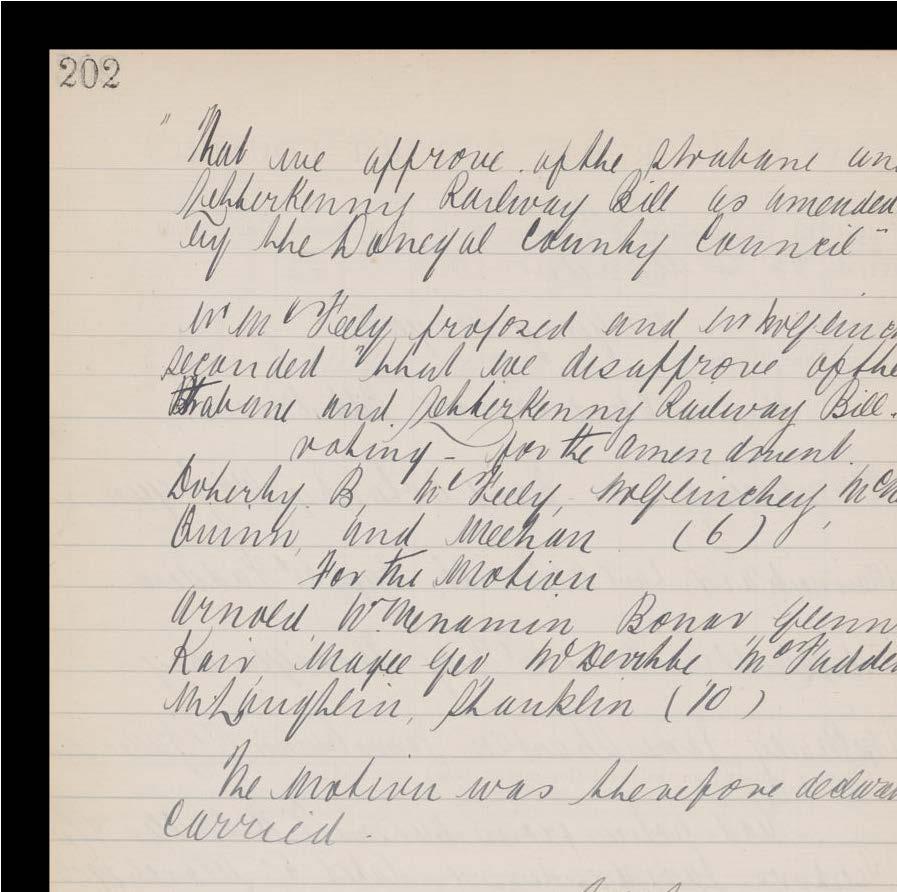 202
" That we approve of the Strabane an
Letterkenny Railway Bill as amended
by the Donegal County Council "
Mr McFeely proposed and Mr McGlinch
seconded "that we disapprove of the
Strabane and Letterkenny Railway Bill.
voting - for the amendment.
Doherty B, McFeely, McGlinchey, McM
Quinn, and Meehan (6)
For the Motion
Arnold McMenamin Bonar, Glenn
Kair, Magee Geo McDevitte McFadde
McLaughlin, Shanklin (10)
The Motion was therefore declar
Carried.